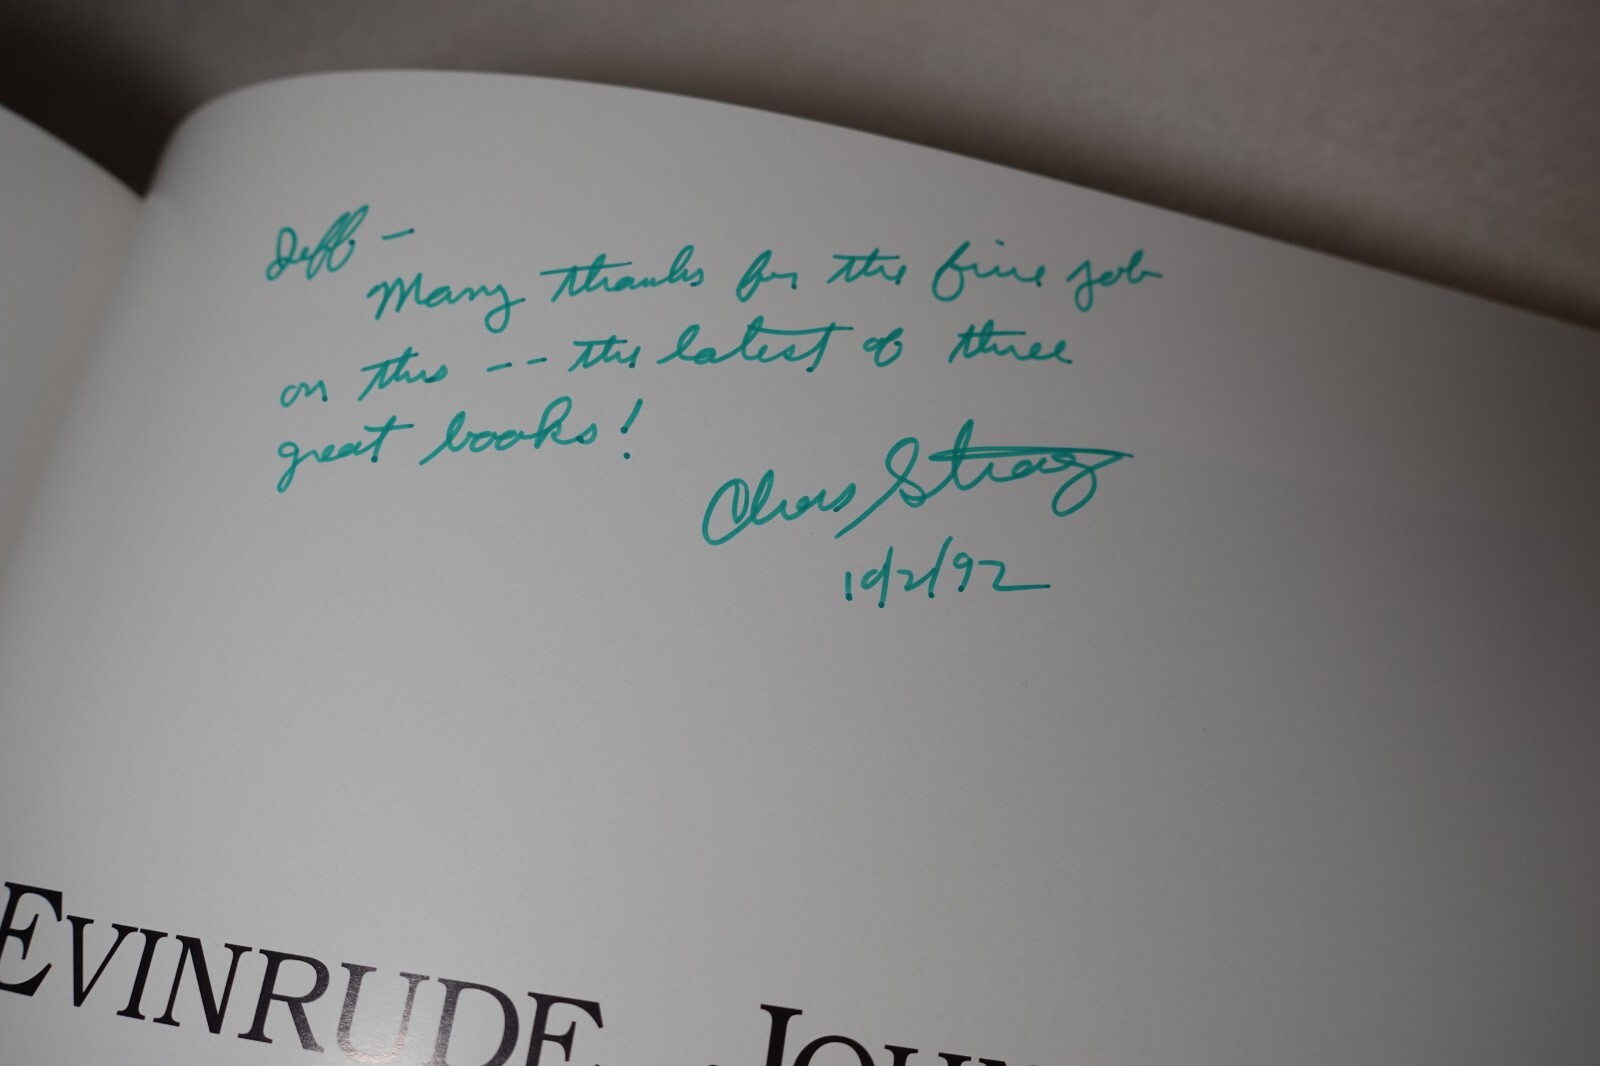 Jeff -
Many thanks for the fine job
on this -- the latest of three
great books!
Chas Strang
10/2/92
EVINRUDE JOHN